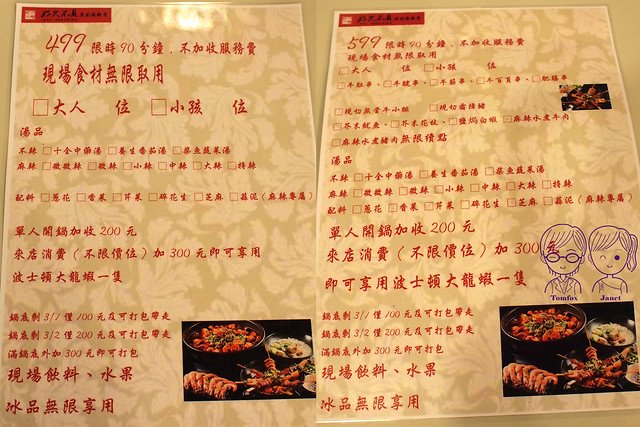 499 限時90分鐘．不加收服務費
現場食材無限取用
□大人 位 □小孩 位
湯品
不辣 □十全中藥湯 □養生番茄湯 □柴魚蔬菜湯
麻辣 □微微辣 □微辣 □小辣 □中辣 □大辣 □特辣
配料 □蔥花 □香菜 □芹菜 □碎花生 □芝麻 □蒜泥(麻辣專屬)
單人開鍋加收200元
來店消費(不限價位)加300元即可享用
波士頓大龍蝦一隻
鍋底剩3/1僅100元及可打包帶走
鍋底剩3/2僅200元及可打包帶走
滿鍋底外加300元即可打包
現場飲料、水果
冰品無限享用
599 限時90分鐘．不加收服務費
現場食材無限取用
□大人 位 □小孩 位
□牛肚串、□牛腱串、□牛筋串、□牛百頁串、□肥腸串
□現切無骨牛小排 □現切霜降豬
□芥末魷魚、□芥末花枝、□鹽焗白蝦、□麻辣水煮牛肉
□麻辣水煮豬肉無限續點
湯品
不辣 □十全中藥湯 □養生番茄湯 □柴魚蔬菜湯
麻辣 □微微辣 □微辣 □小辣 □中辣 □大辣 □特辣
配料 □蔥花 □香菜 □芹菜 □碎花生 □芝麻 □蒜泥(麻辣專屬)
單人開鍋加收200元
來店消費(不限價位)加300元
即可享用波士頓大龍蝦一隻
Tomfox Janet
鍋底剩3/1僅100元及可打包帶走
鍋底剩3/2僅200元及可打包帶走
滿鍋底外加300元即可打包
現場飲料、水果
冰品無限享用